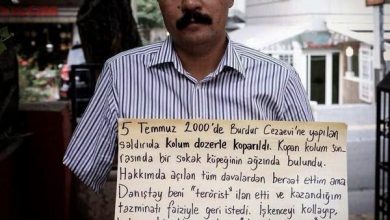 5 Temmuz 2000'de Burdur Cezaevi'ne yapılan
saldırıda kolum dozerle koparıldı. Kopan kolum son-
rasında bir sokak köpeğinin ağzında bulundu.
Hakkımda açılan tüm davalardan beraat ettim ama
Danıştay beni "terörist" ilan etti ve kazandığım
tazminatı faiziyle geri istedi. İşkenceyi kollayıp,